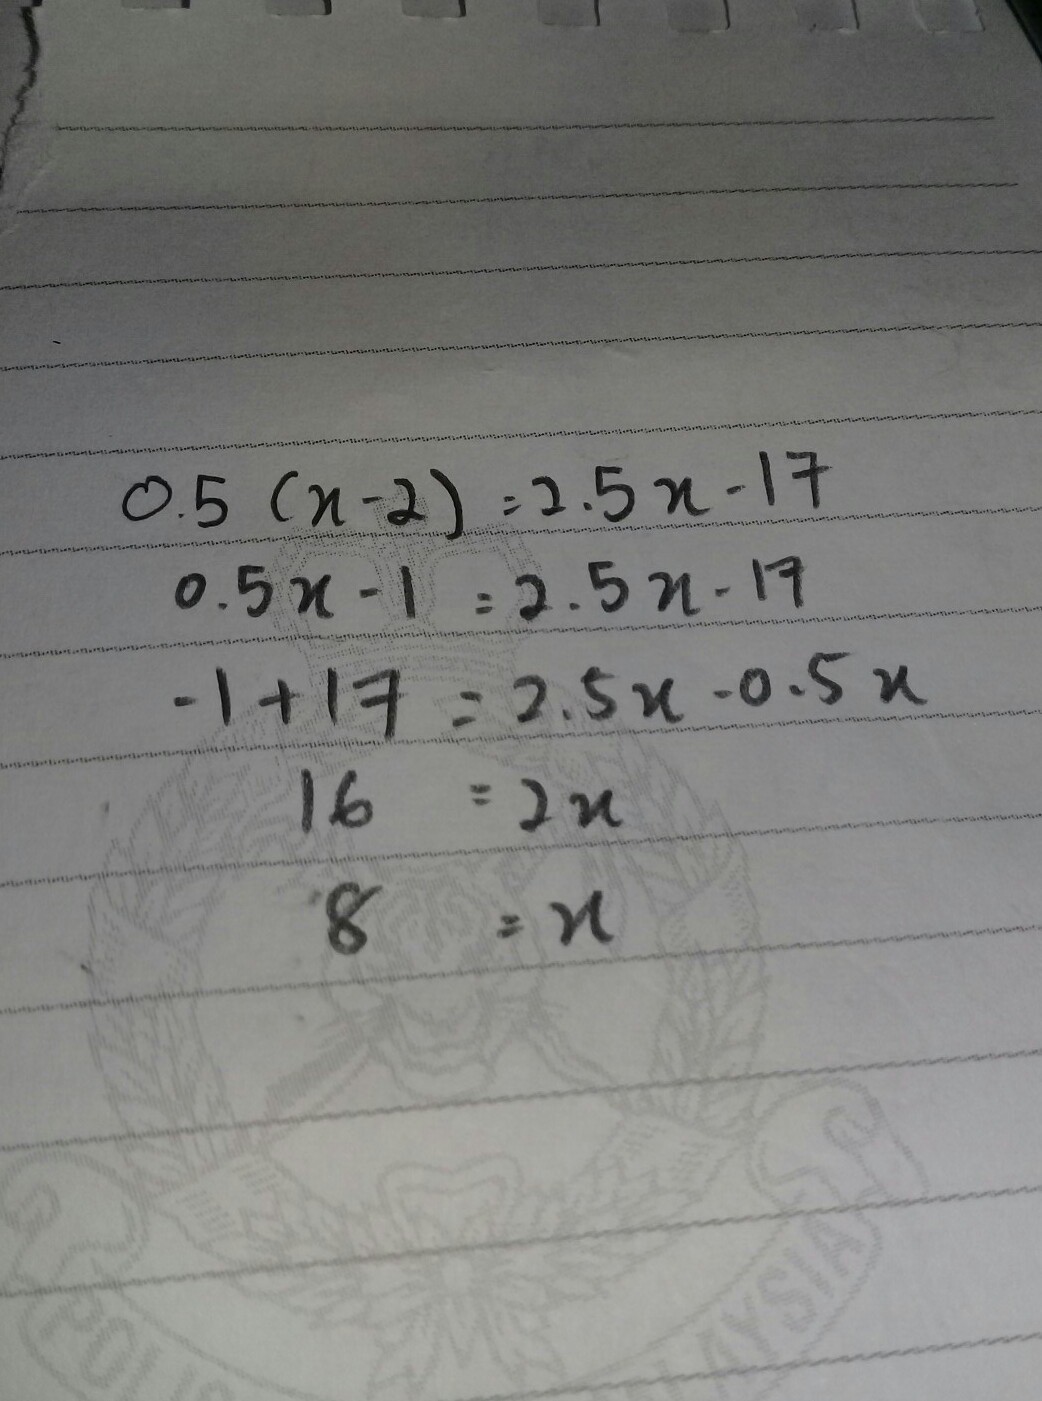 0.5 (x-2) = 2.5x - 17
0.5x - 1 = 2.5x - 17
-1 + 17 = 2.5x - 0.5x
16 = 2x
8 = x